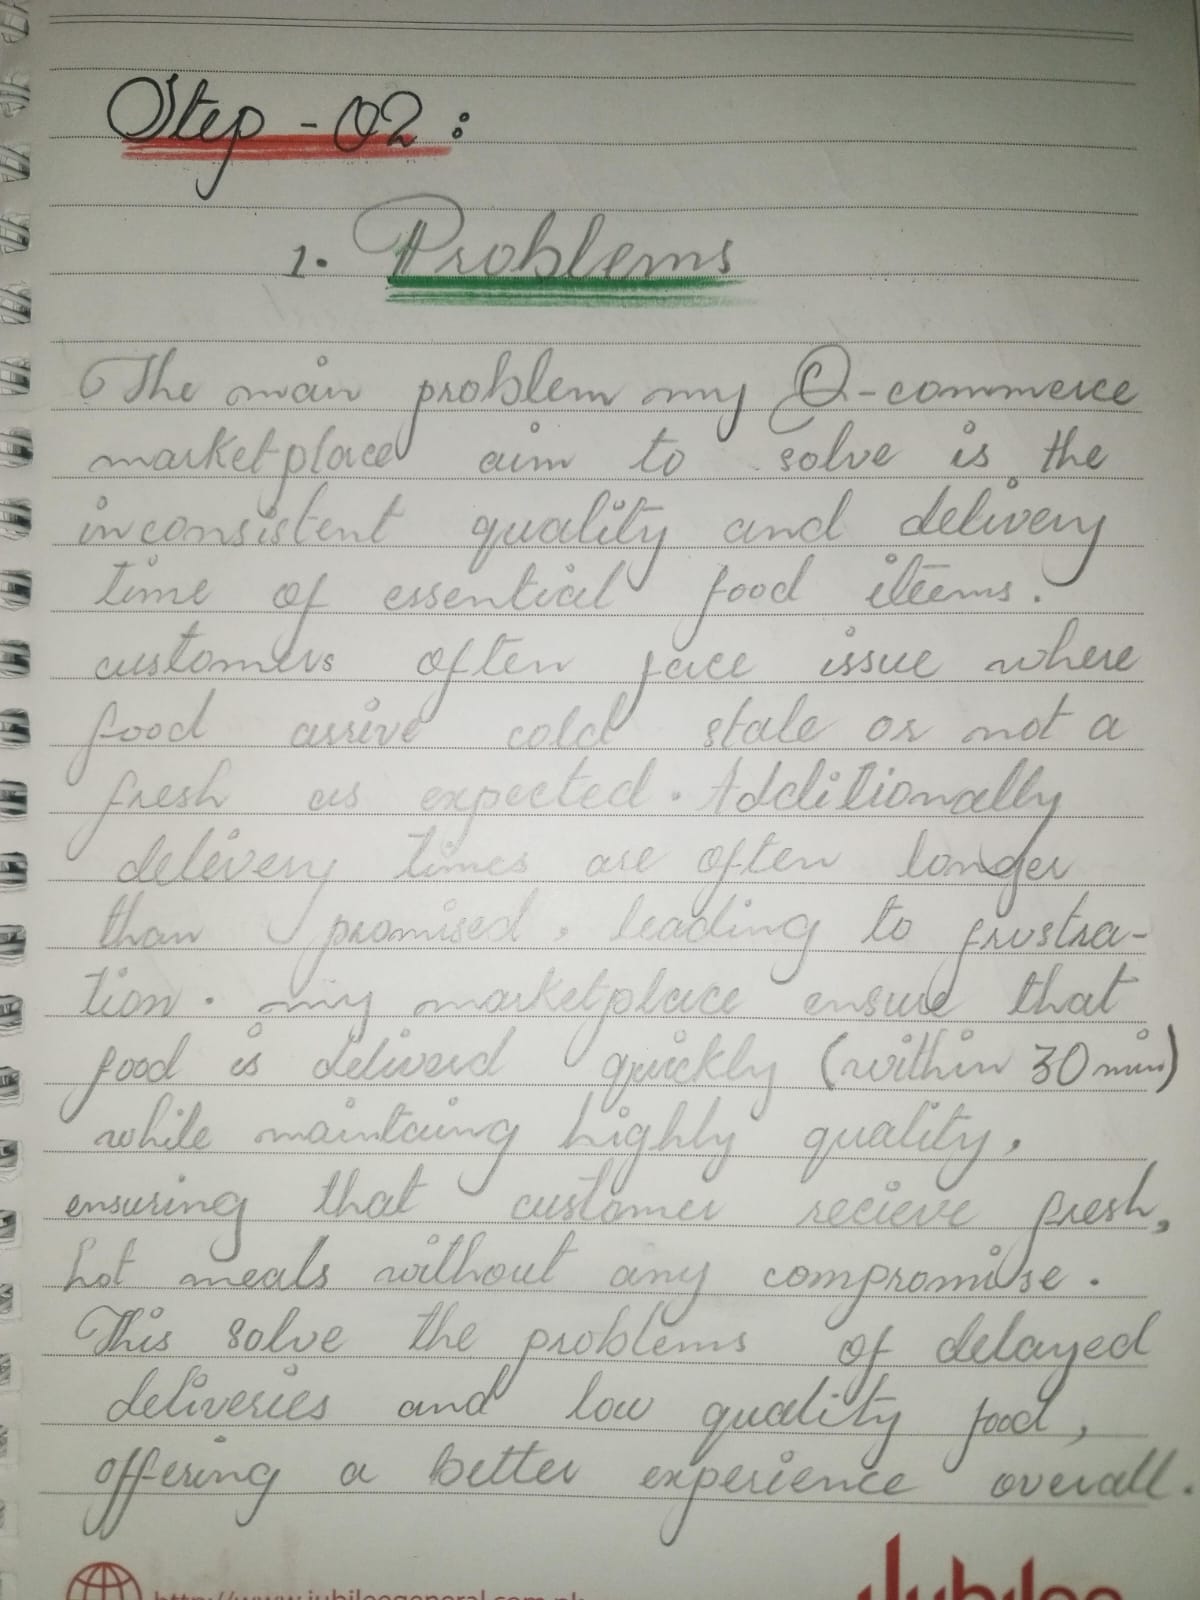 Step - 02 :
1. Problems
The main problem my Q-commerce
marketplace aim to solve is the
inconsistent quality and delivery
time of essential food iteems.
customers often face issue where
food arrive cold stale or not a
fresh as expected. Additionally
delivery times are often longer
than promised, leading to frustra-
tion. my marketplace ensure that
food is deliverd quickly (within 30 min)
while maintaing highly quality,
ensuring that customer recieve fresh,
hot meals without any compromise.
This solve the problems of delayed
deliveries and low quality food,
offering a better experience overall.
http://www.jubileegeneral.com.pk
Jubilee